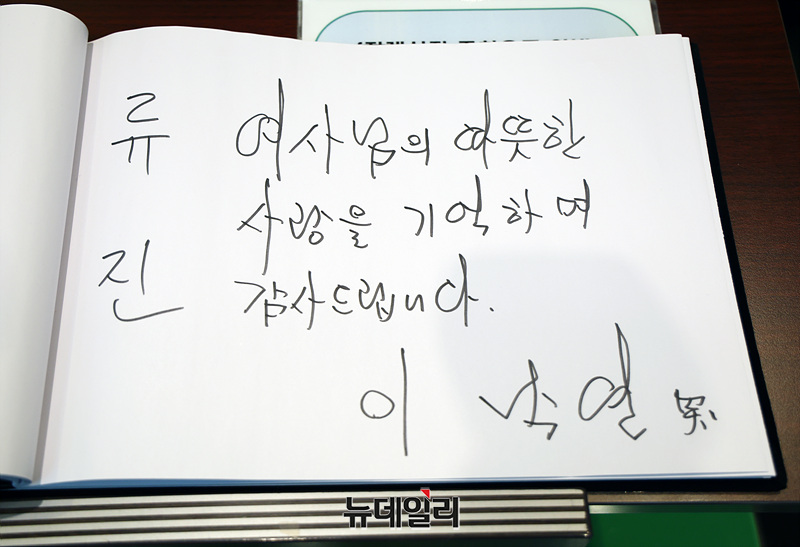 류
진
여사님의 따뜻한
사랑을 기억하며
감사드립니다.
이 낙열
뉴데일리